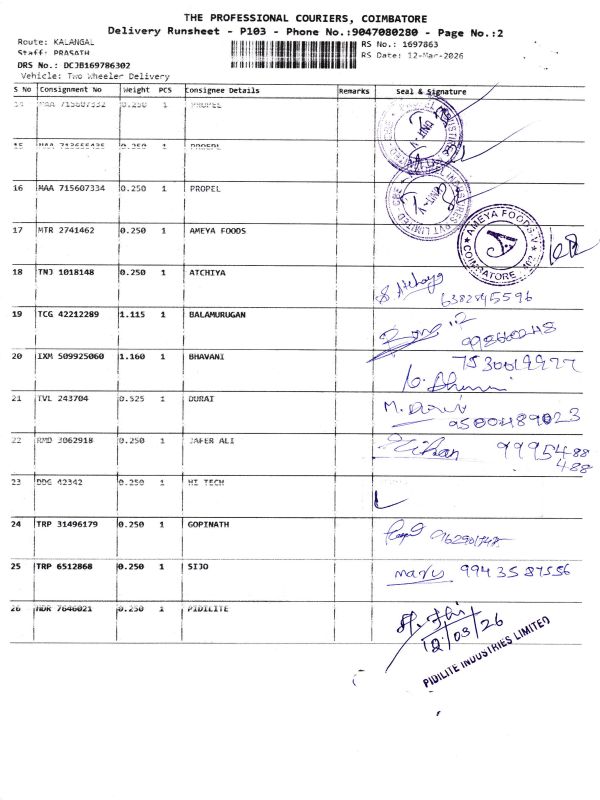 THE PROFESSIONAL COURIERS, COIMBATORE
Delivery Runsheet - P103 - Phone No.:9047080280 - Page No.:2
Route: KALANGAL
Staff: PRASATH
RS No.: 1697863
RS Date: 12-Mar-2026
DRS No.: DCJB169786302
Vehicle: Two Wheeler Delivery
S No Consignment No Weight PCS Consignee Details Remarks Seal & Signature
14 MAA 715607332 0.250 1 PROPEL
15 MAA 0.250 1 PROPEL
16 MAA 715607334 0.250 1 PROPEL
17 MTR 2741462 0.250 1 AMEYA FOODS
AMEYA FOODS
COIMBATORE
18 TNJ 1018148 0.250 1 ATCHIYA
6382845596
19 TCG 42212289 1.115 1 BALAMURUGAN
20 IXM 509925060 1.160 1 BHAVANI
21 TVL 243704 0.525 1 DURAI
9500489023
22 RMD 3062918 0.250 1 JAFER ALI
9995488
488
23 DDG 42342 0.250 1 HI TECH
24 TRP 31496179 0.250 1 GOPINATH
25 TRP 6512868 0.250 1 SIJO
9943587556
26 NDR 7646021 0.250 1 PIDILITE
12/03/26
PIDILITE INDUSTRIES LIMITED